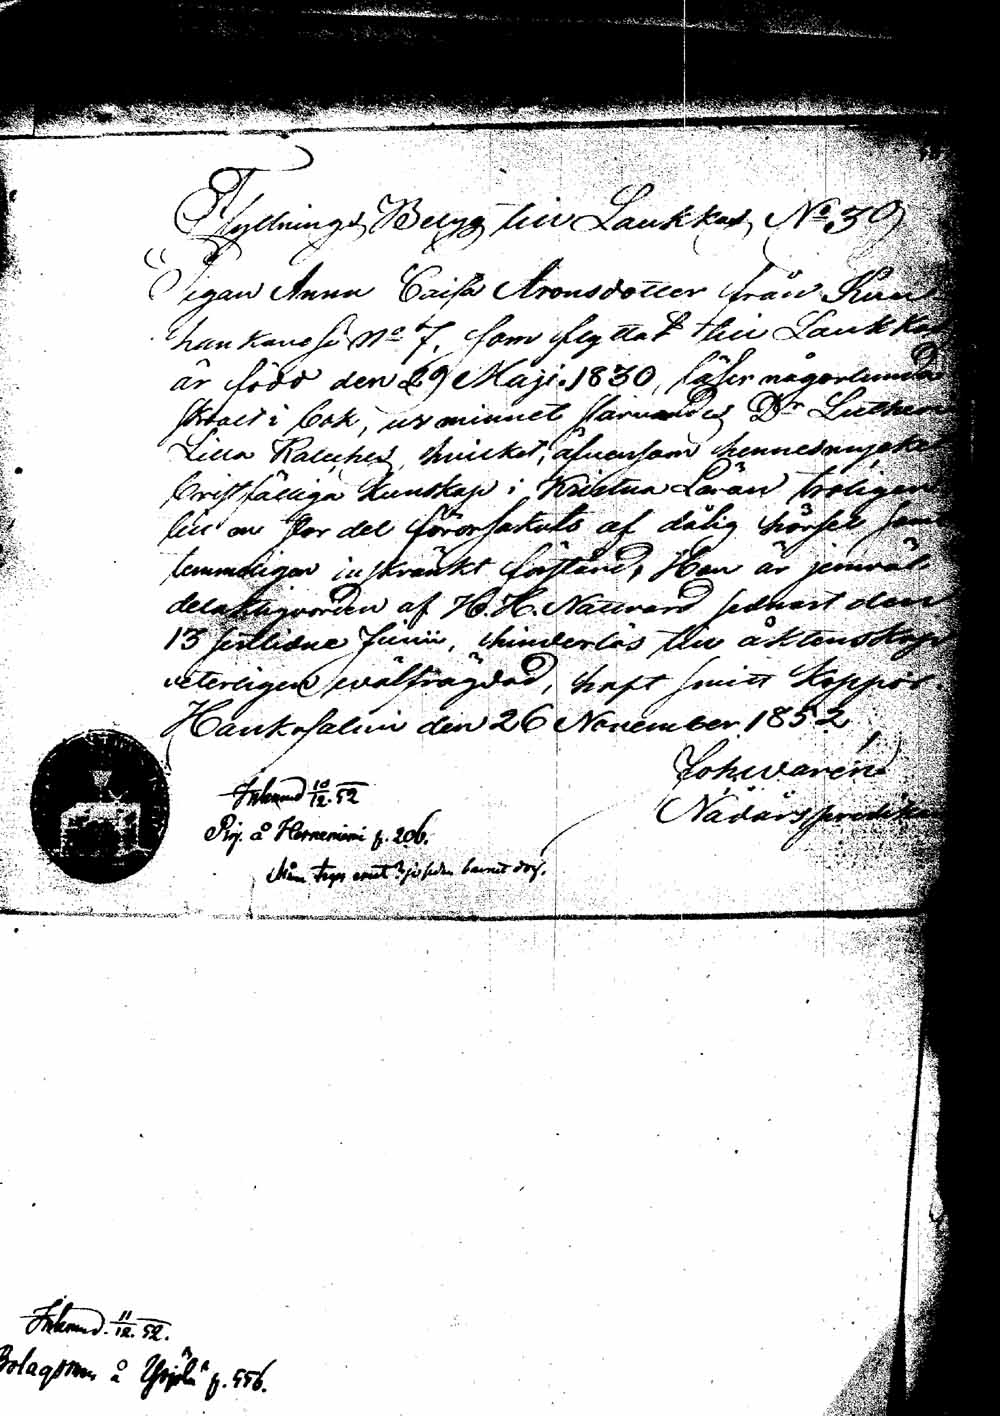 Flyttnings Betyg till Laukkas, No 39
Pigan Anna Caisa Aronsdotter från Kuu
hankavesi No 7, som flyttat till Laukkas,
är född den 29 Maji 1830, läser någorlunda
i bok, ur minnet Dr Luthers
Lilla Kateches, hvilket, äfvensom hennes mycket
bristfälliga kunskap i Kristna Läran troligen
till en stor del förorsakats af dålig hörsel samt
temmeligen inskränkt förstånd. Hon är jemväl
delaktigvorden af H. H. Nattvard sednast den
13 sistlidne Junii, hinderlös till äktenskap
veterligen, välfrägdad, haft smitt koppor.
Hankasalmi den 26 November 1852
Joh. Warén
Nådårspredik
Inkomd 10/12. 52
Rij. å Hernemimi p. 206.
barnet dog.
Inkomd. 11/12. 52.
Bolagsman å p. 556.